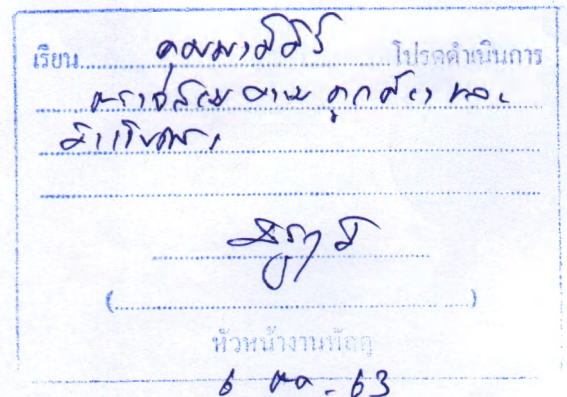 เรียน คุณมาลีวี โปรดดำเนินการ
ตรวจสอบความถูกต้อง และ
ดำเนินการ
(          )
หัวหน้างานพัสดุ
6 ตค. 63